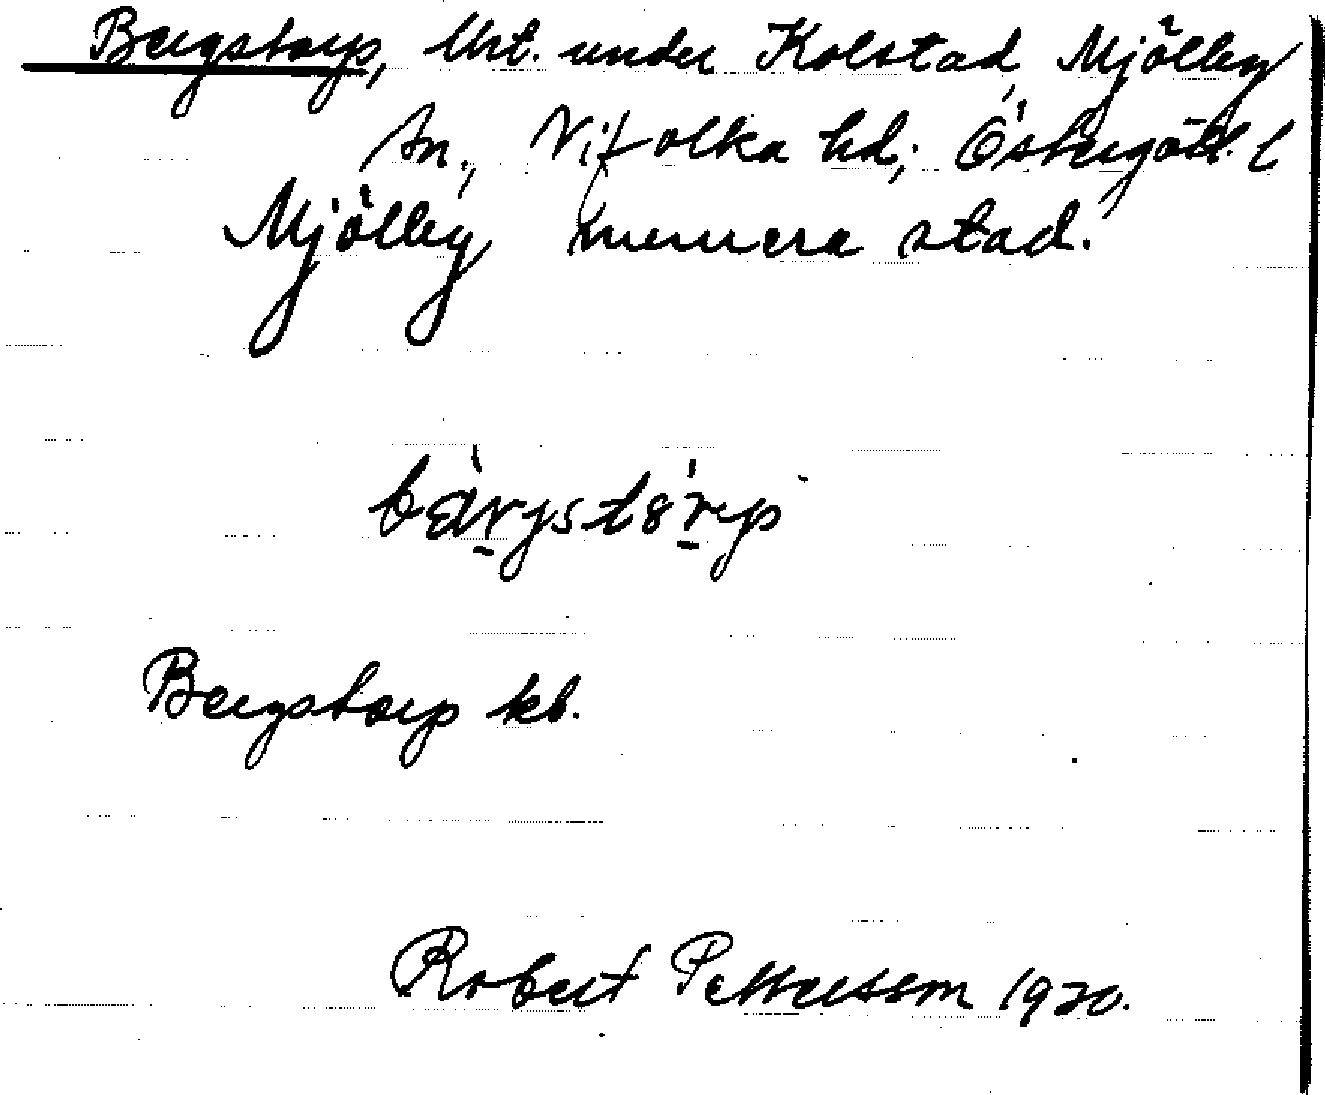 Bergstorp, Urt. under Kolstad, Mjölby
sn., Vifolka hd; Östergötl. l
Mjölby numera stad.
bærjstɵrp
Bergstorp kb.
Robert Pettersson 1920.